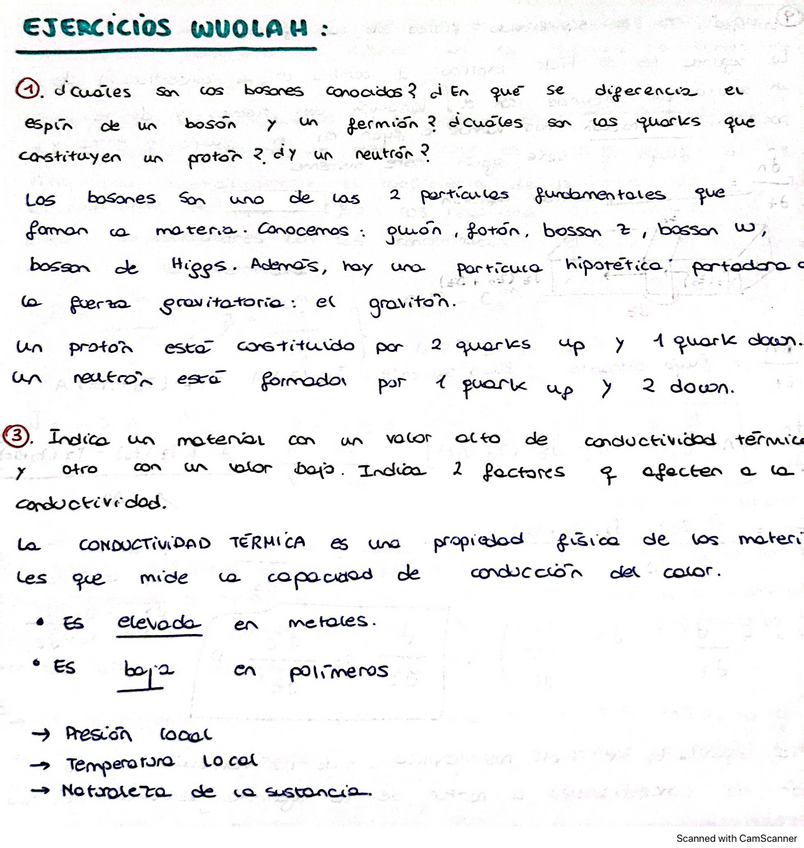 EJERCICIOS WUOLAH:
①. ¿Cuáles son los bosones conocidos? ¿En qué se diferencia el
espín de un bosón y un fermión? ¿Cuáles son los quarks que
constituyen un protón? ¿Y un neutrón?
Los bosones son una de las 2 partículas fundamentales que
forman la materia. Conocemos: gluón, fotón, bosson Z, bosson W,
bosson de Higgs. Además, hay una partícula hipotética: portadora
la fuerza gravitatoria: el gravitón.
Un protón está constituido por 2 quarks up y 1 quark down.
Un neutrón está formador por 1 quark up y 2 down.
③. Indica un material con un valor alto de conductividad térmica
y otro con un valor bajo. Indica 2 factores q afecten a la
conductividad.
La CONDUCTIVIDAD TÉRMICA es una propiedad física de los materi
les que mide la capacidad de conducción del calor.
• Es elevada en metales.
• Es baja en polímeros
→ Presión local
→ Temperatura local
→ Naturaleza de la sustancia.
Scanned with CamScanner